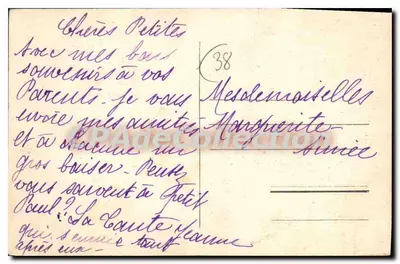 Chères Petites
Avec mes bons
souvenirs à vos
Parents. je vous
envoie mes amitiés
et à chacune un
gros baiser. Pensez
vous souvent à Petit
Paul? La Tante Jeanne
qui s'ennuie tant
après eux -
38
Mesdemoiselles
Marguerite
Aimée